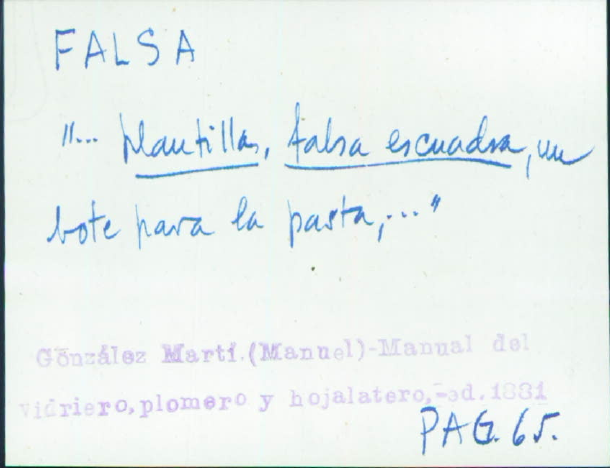 FALSA
"... plantillas, falsa escuadra, un
bote para la pasta,..."
González Martí.(Manuel)-Manual del
vidriero,plomero y hojalatero,-ed.1881
PAG. 65.